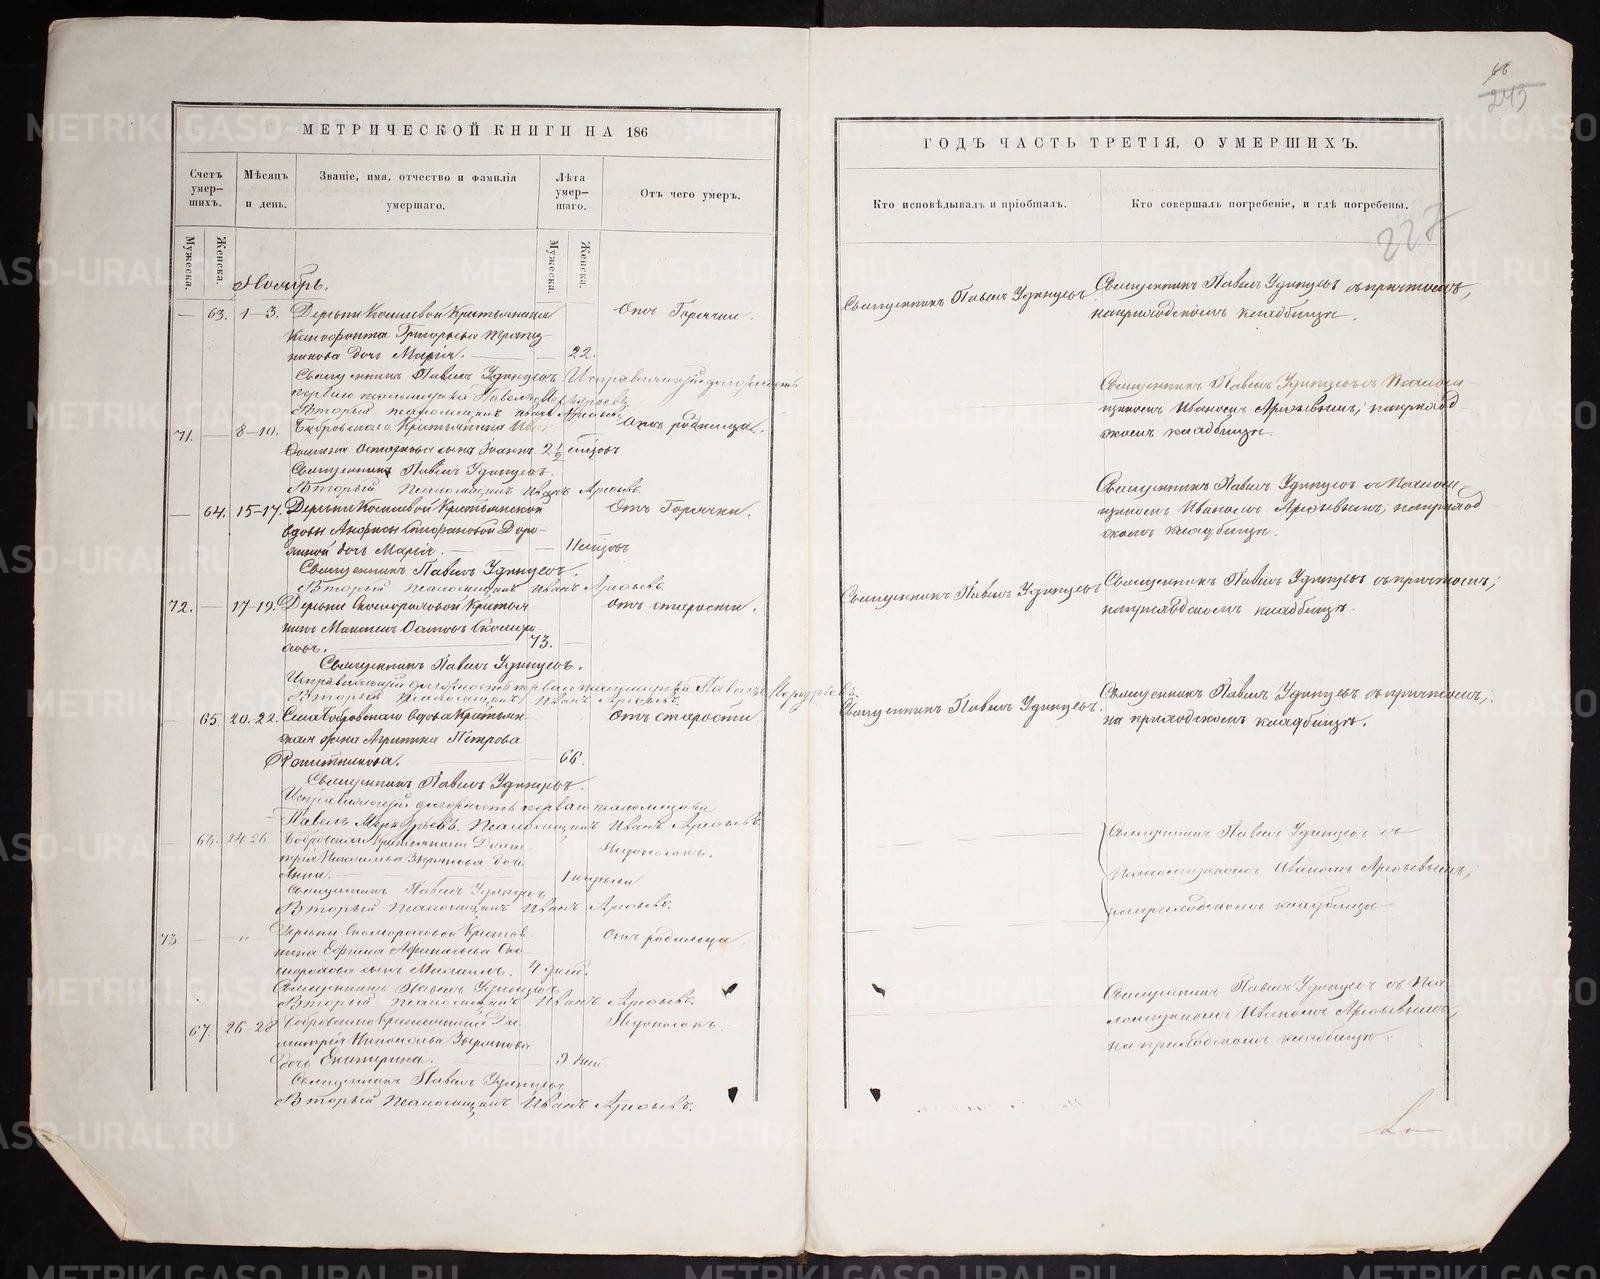 66
243
МЕТРИЧЕСКОЙ КНИГИ НА 186
ГОДЪ ЧАСТЬ ТРЕТІЯ, О УМЕРШИХЪ.
Счетъ умер- шихъ.
Мѣсяцъ и день.
Званіе, имя, отчество и фамилія умершаго.
Лѣта умер- шаго.
Отъ чего умеръ.
Кто исповѣдывалъ и пріобщалъ.
Кто совершалъ погребеніе, и гдѣ погребены.
227
Мужеска.
Женска.
Мужеска.
Женска.
Ноябрь.
63. 1-3. Деревни Кошевой Крестьянина Отъ Горячки. Священникъ Павелъ Удинцевъ Священникъ Павелъ Удинцевъ съ причтомъ,
Ксенофонта Григорьева
дочь Марія. 22. на приходскомъ кладбищѣ.
Священникъ Павелъ Удинцевъ Исправляющій должность
перваго псаломщика Павелъ Меркурьевъ
Второй псаломщикъ Иванъ Арефьевъ.
71. 8-10. Бобровскаго Крестьянина Отъ родимца. Священникъ Павелъ Удинцевъ съ Псалом-
сына Іоаннъ 2 1/2 мѣсяцовъ щикомъ Иваномъ Арефьевымъ; на приход-
скомъ кладбищѣ.
Священникъ Павелъ Удинцевъ.
Второй Псаломщикъ Иванъ Арефьевъ.
64. 15-17. Деревни Кошевой Крестьянской Отъ Горячки. Священникъ Павелъ Удинцевъ съ Псалом-
вдовы Анфисы Стефановой Доро- щикомъ Иваномъ Арефьевымъ; на приход-
дочь Марія. 11 мѣсяцовъ скомъ кладбищѣ.
Священникъ Павелъ Удинцевъ.
Второй Псаломщикъ Иванъ Арефьевъ.
72. 17-19. Деревни Скоморохозой Крестья Отъ старости. Священникъ Павелъ Удинцевъ Священникъ Павелъ Удинцевъ съ причтомъ;
нинъ 73. на приходскомъ кладбищѣ.
Священникъ Павелъ Удинцевъ.
Исправляющій должность перваго псаломщика Павелъ Меркурьевъ.
Второй Псаломщикъ Иванъ Арефьевъ.
65. 20-22. Села Бобровскаго вдова Крестьян- Отъ старости Священникъ Павелъ Удинцевъ. Священникъ Павелъ Удинцевъ съ причтомъ;
ская жена Агрипина Петрова на приходскомъ кладбищѣ.
66.
Священникъ Павелъ Удинцевъ.
Исправляющій должность перваго псаломщика
Павелъ Меркурьевъ. Псаломщикъ Иванъ Арефьевъ.
66. 24-26. Бобровскаго Крестьянина Дими- Недоносокъ. Священникъ Павелъ Удинцевъ съ
трія Николаева Зырянова дочь Псаломщикомъ Иваномъ Арефьевымъ;
Анна. 1 недѣли на приходскомъ кладбищѣ
Священникъ Павелъ Удинцевъ
Второй Псаломщикъ Иванъ Арефьевъ.
73. " Деревни Скомороховой Крестья- Отъ родимца.
нина Ефима Афанасьева Ско-
морохова сынъ Михаилъ. 4 дней.
Священникъ Павелъ Удинцевъ. Священникъ Павелъ Удинцевъ съ Пса-
Второй Псаломщикъ Иванъ Арефьевъ. ломщикомъ Иваномъ Арефьевымъ;
67. 26-28 Бобровскаго Крестьянина Ди- Недоносокъ. на приходскомъ кладбищѣ.
митрія Николаева Зырянова
дочь Екатерина. 9 дней
Священникъ Павелъ Удинцевъ
Второй Псаломщикъ Иванъ Арефьевъ.
METRIKI.GASO-URAL.RU